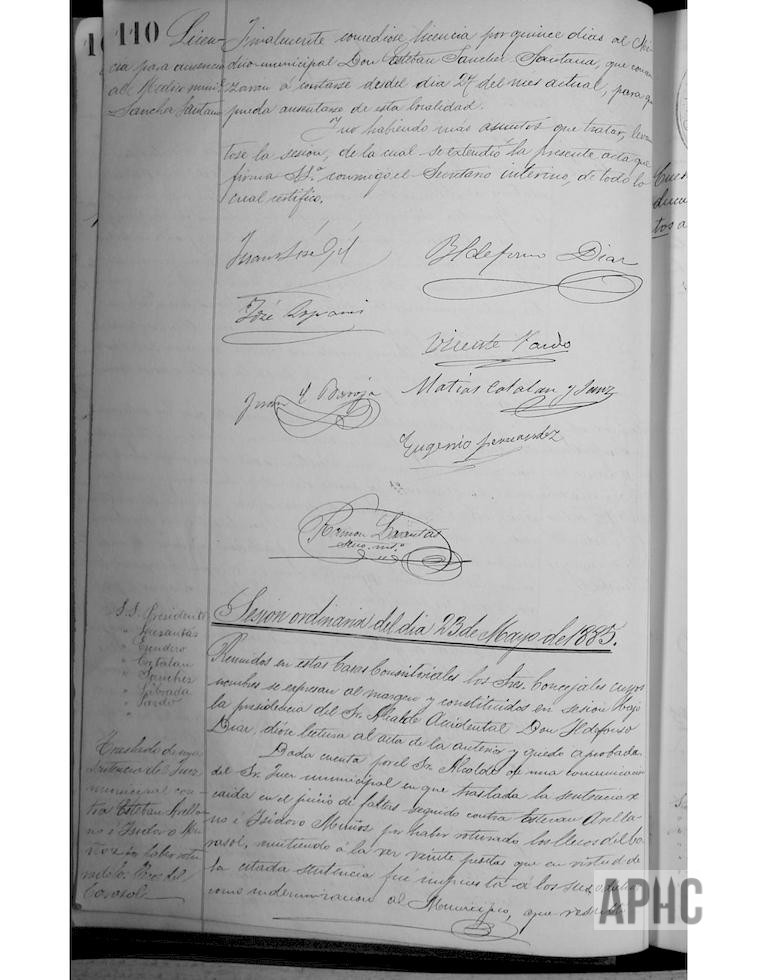 110
Licen-
cia para ausencia
al Medico muni.
Sancha Santana
Finalmente concediose licencia por quince dias al Me-
dico municipal Don Esteban Sancher Santana, que comen
zaran á contarse desde el dia 27 del mes actual, para que
pueda ausentarse de esta localidad.
Y no habiendo mas asuntos que tratar, levan
tose la sesion, de la cual se extendió la presente acta que
firma S.S.ª conmigo el Secretario interino, de todo lo
cual certifico.
Juan José Gil
Yldefonso Diar
José
Vicente Pardo
Juan Y Baroja
Matias Catalan y Sanz
Eugenio Fernandez
Ramon
Srio. int.º
Sesion ordinaria del dia 23 de Mayo de 1885.
S.S. Presidente
" 
" 
" Catalan
" Sanches
" Labrada
" Pardo
"
Reunidos en estas Casas Consistoriales los Sres. Concejales cuyos
nombres se expresan al margen y constituidos en sesion bajo
la presidencia del Sr. Alcalde Accidental Don Ildefonso
Diar, dióse lectura al acta de la anterior y quedo aprobada.
Traslado de una
sentencia del Juez
municipal con-
tra Esteban Arella-
no é Isidoro Mu-
ñoz por haber rotu-
rado los llecos del
Carasol
Dada cuenta por el Sr. Alcalde de una comunicacion
del Sr. Juez municipal en que traslada la sentencia re
caida en el juicio de faltas seguido contra Estevan Arella-
no é Isidoro Muños por haber roturado los llecos del Ca-
rasol, remitiendo á la vez veinte pesetas que en virtud de
la citada sentencia fué impuesta á los susodichos
como indemnizacion al Municipio, que
Cuen
docu
tos a
APHC